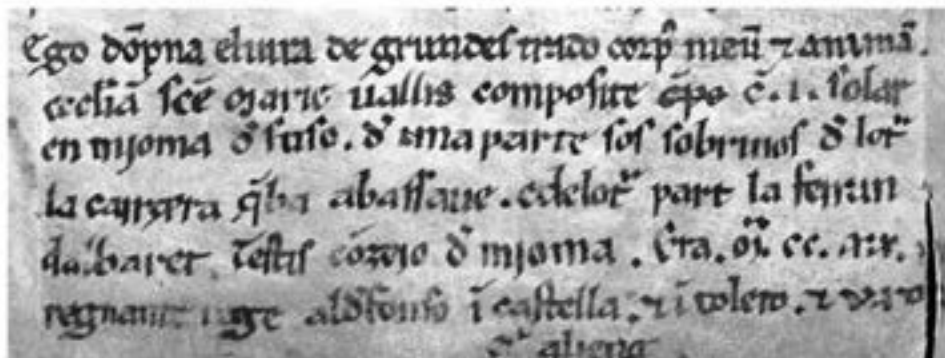 Ego dõpna eluira de grundes trado corp̃ meũ ⁊ animã.
eccłiã sc̃e marie uallis composite c̃. i. solar
en mioma d̃ suso. d̃ una parte sos sobrinos d̃ lot̃
la carrera q̃ ua abassaue. edelot̃ part la ferrun
Testis cõzeio d̃ mioma. Era. m̃. cc. xxx.
regnante rege aldfonso ĩ castella. ⁊ ĩ toleto. ⁊